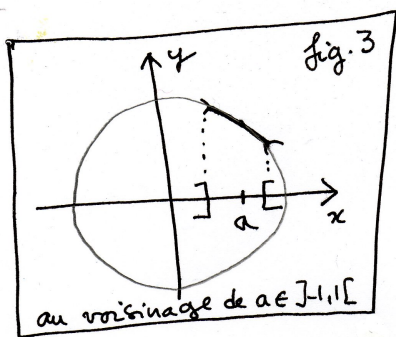 fig. 3
y
] a [
x
au voisinage de a ∈ ]-1,1[